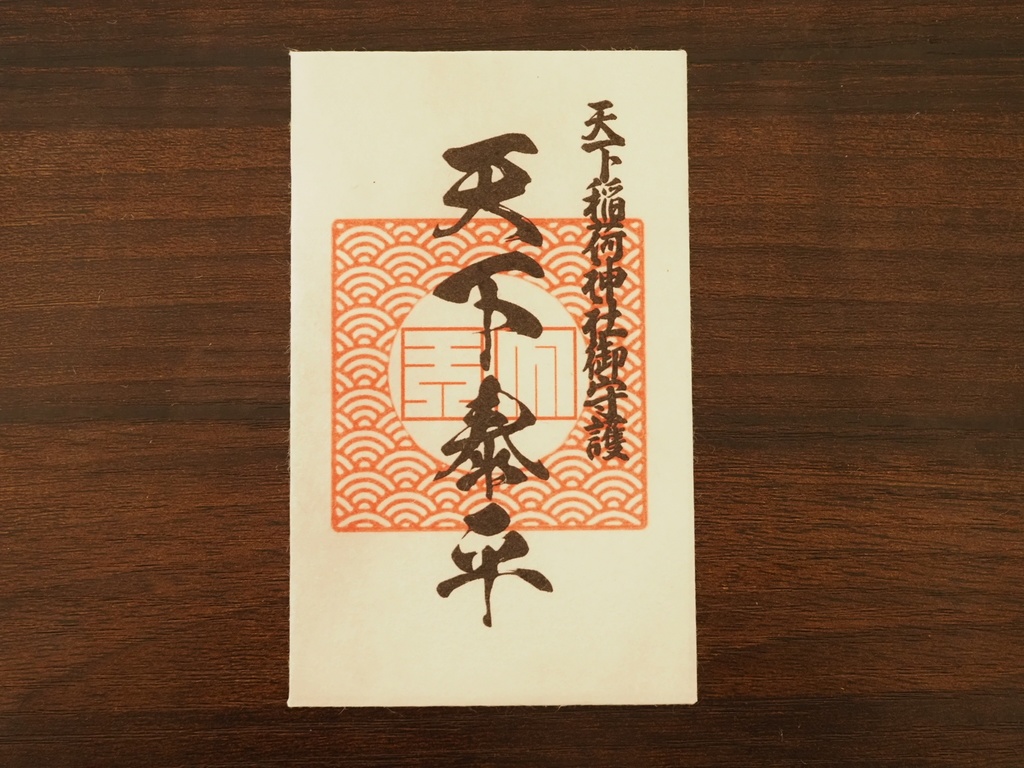 天下稲荷神社御守護
天下泰平